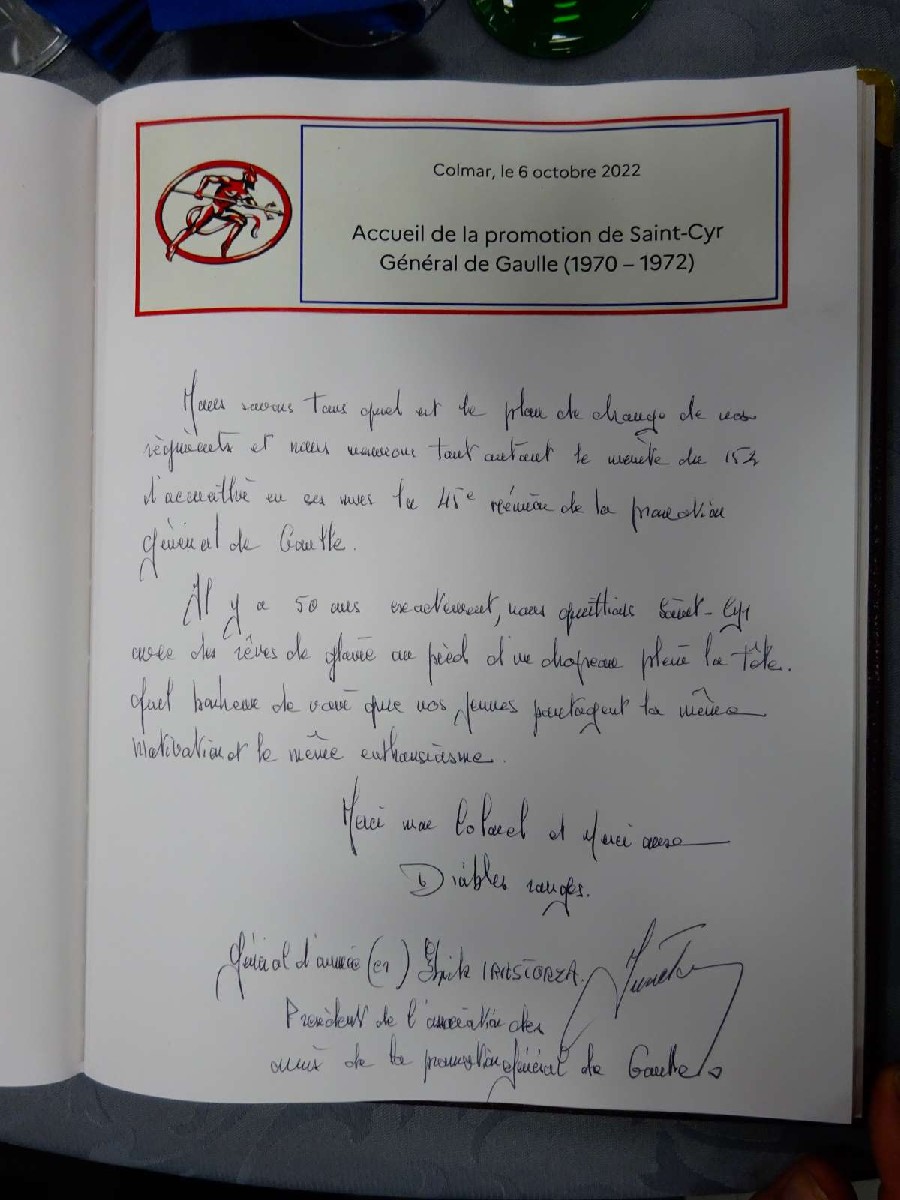 Colmar, le 6 octobre 2022
Accueil de la promotion de Saint-Cyr
Général de Gaulle (1970 – 1972)
Nous savons tous quel est le plan de charge de nos
régiments et nous mesurons tout autant le mérite du 152
d'accueillir en ses murs la 45e réunion de la promotion
général de Gaulle.
Il y a 50 ans exactement, nous quittions Saint-Cyr
avec des rêves de gloire au pied d'un chapeau plein la tête.
Quel bonheur de voir que nos jeunes partagent la même
motivation et le même enthousiasme.
Merci mon Colonel et Merci aux
Diables rouges.
Général d'armée (2s) IRASTORZA.
Président de l'association des
amis de la promotion général de Gaulle